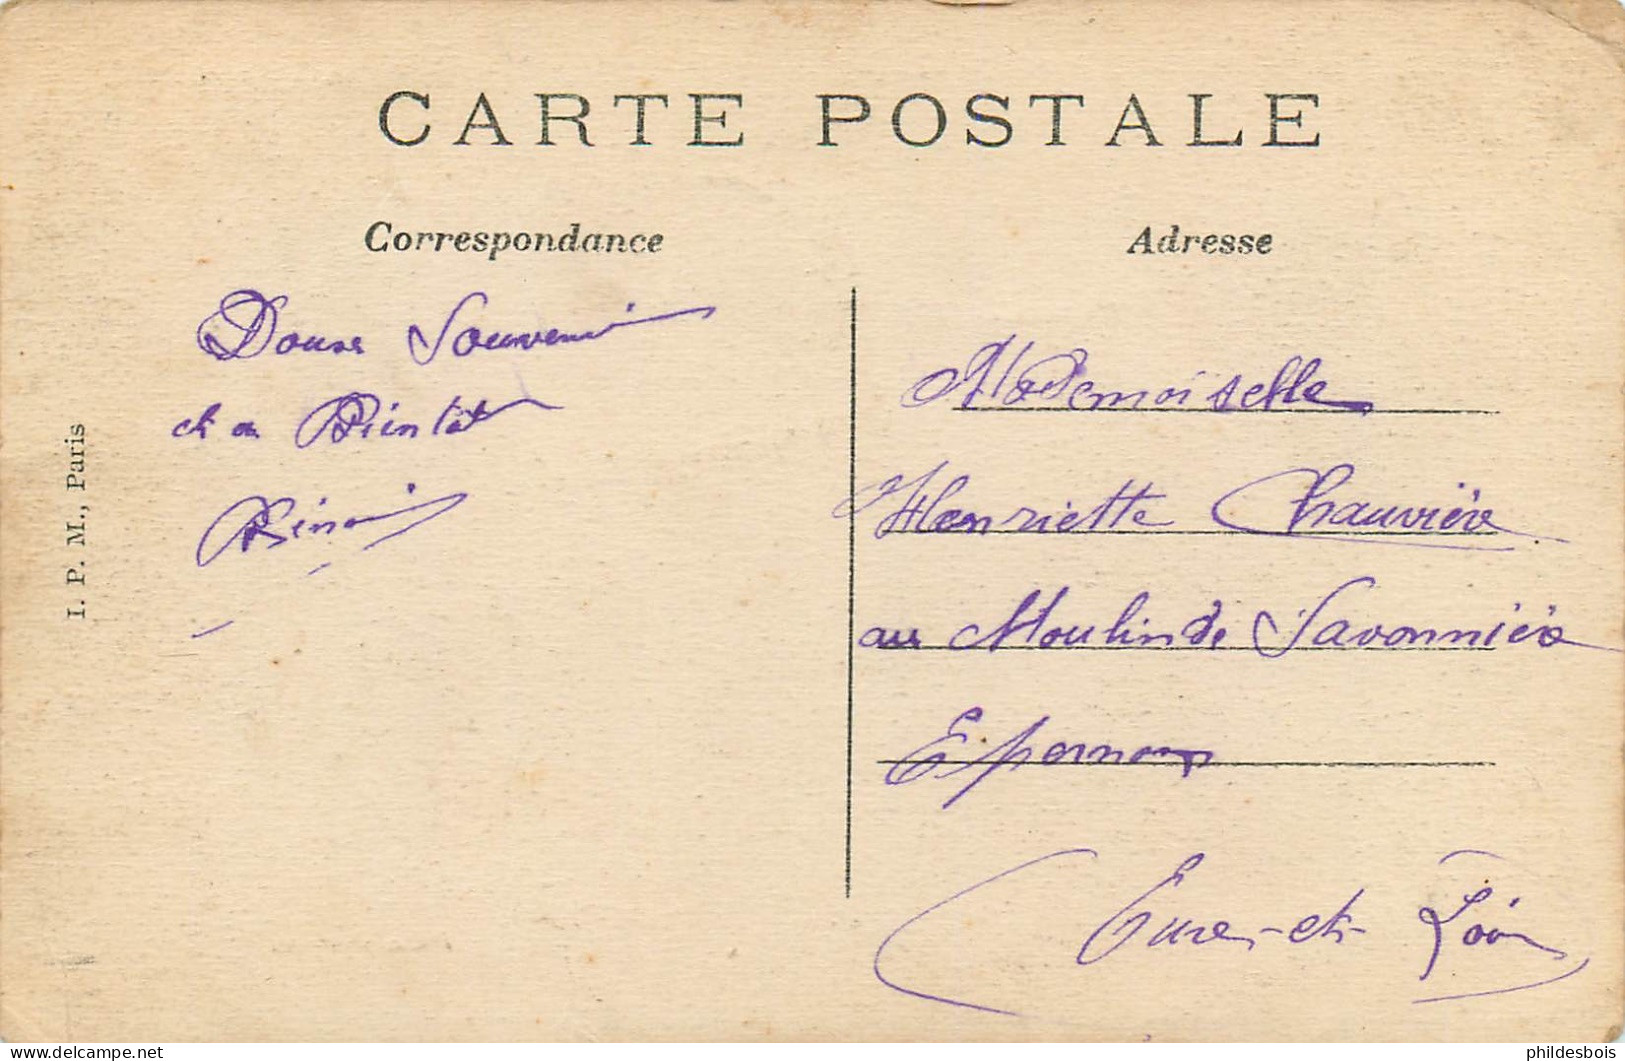 CARTE POSTALE
Correspondance
Doux Souvenir
et a Bientôt
Adresse
Mademoiselle
Henriette Chauvière
au Moulin de Savonnière
Epernon
Eure-et-Loir
I. P. M., Paris
phildesbois